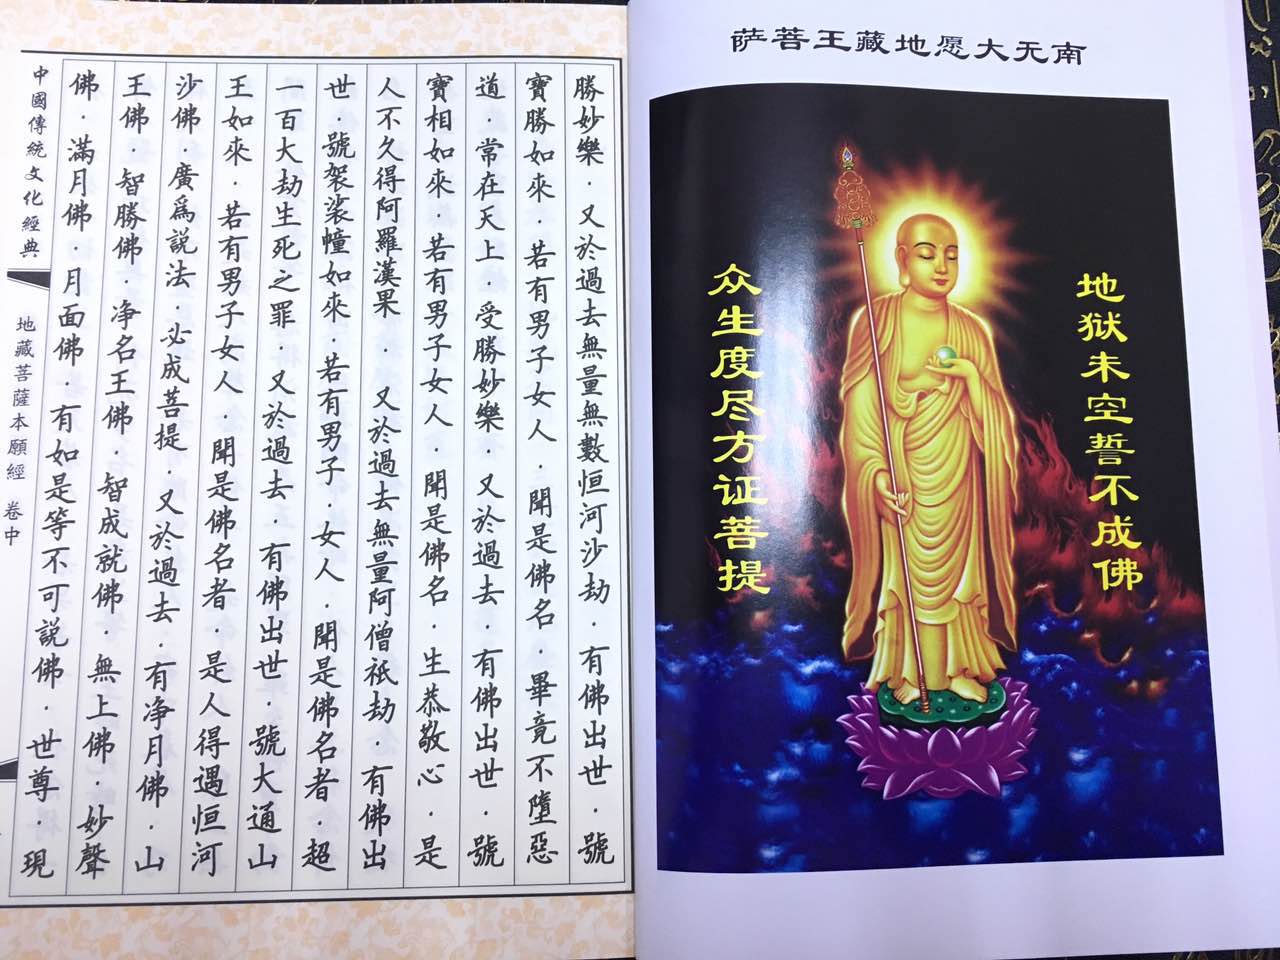 萨菩王藏地愿大无南
地狱未空誓不成佛
众生度尽方证菩提
勝妙樂．又於過去無量無數恒河沙劫．有佛出世．號
寶勝如來．若有男子女人．聞是佛名．畢竟不墮惡
道．常在天上．受勝妙樂．又於過去．有佛出世．號
寶相如來．若有男子女人．聞是佛名．生恭敬心．是
人不久得阿羅漢果．又於過去無量阿僧祇劫．有佛出
世．號袈裟幢如來．若有男子．女人．聞是佛名者．超
一百大劫生死之罪．又於過去．有佛出世．號大通山
王如來．若有男子女人．聞是佛名者．是人得遇恒河
沙佛．廣為說法．必成菩提．又於過去．有净月佛．山
王佛．智勝佛．净名王佛．智成就佛．無上佛．妙聲
佛．滿月佛．月面佛．有如是等不可說佛．世尊．現
中國傳統文化經典
地藏菩薩本願經 卷中